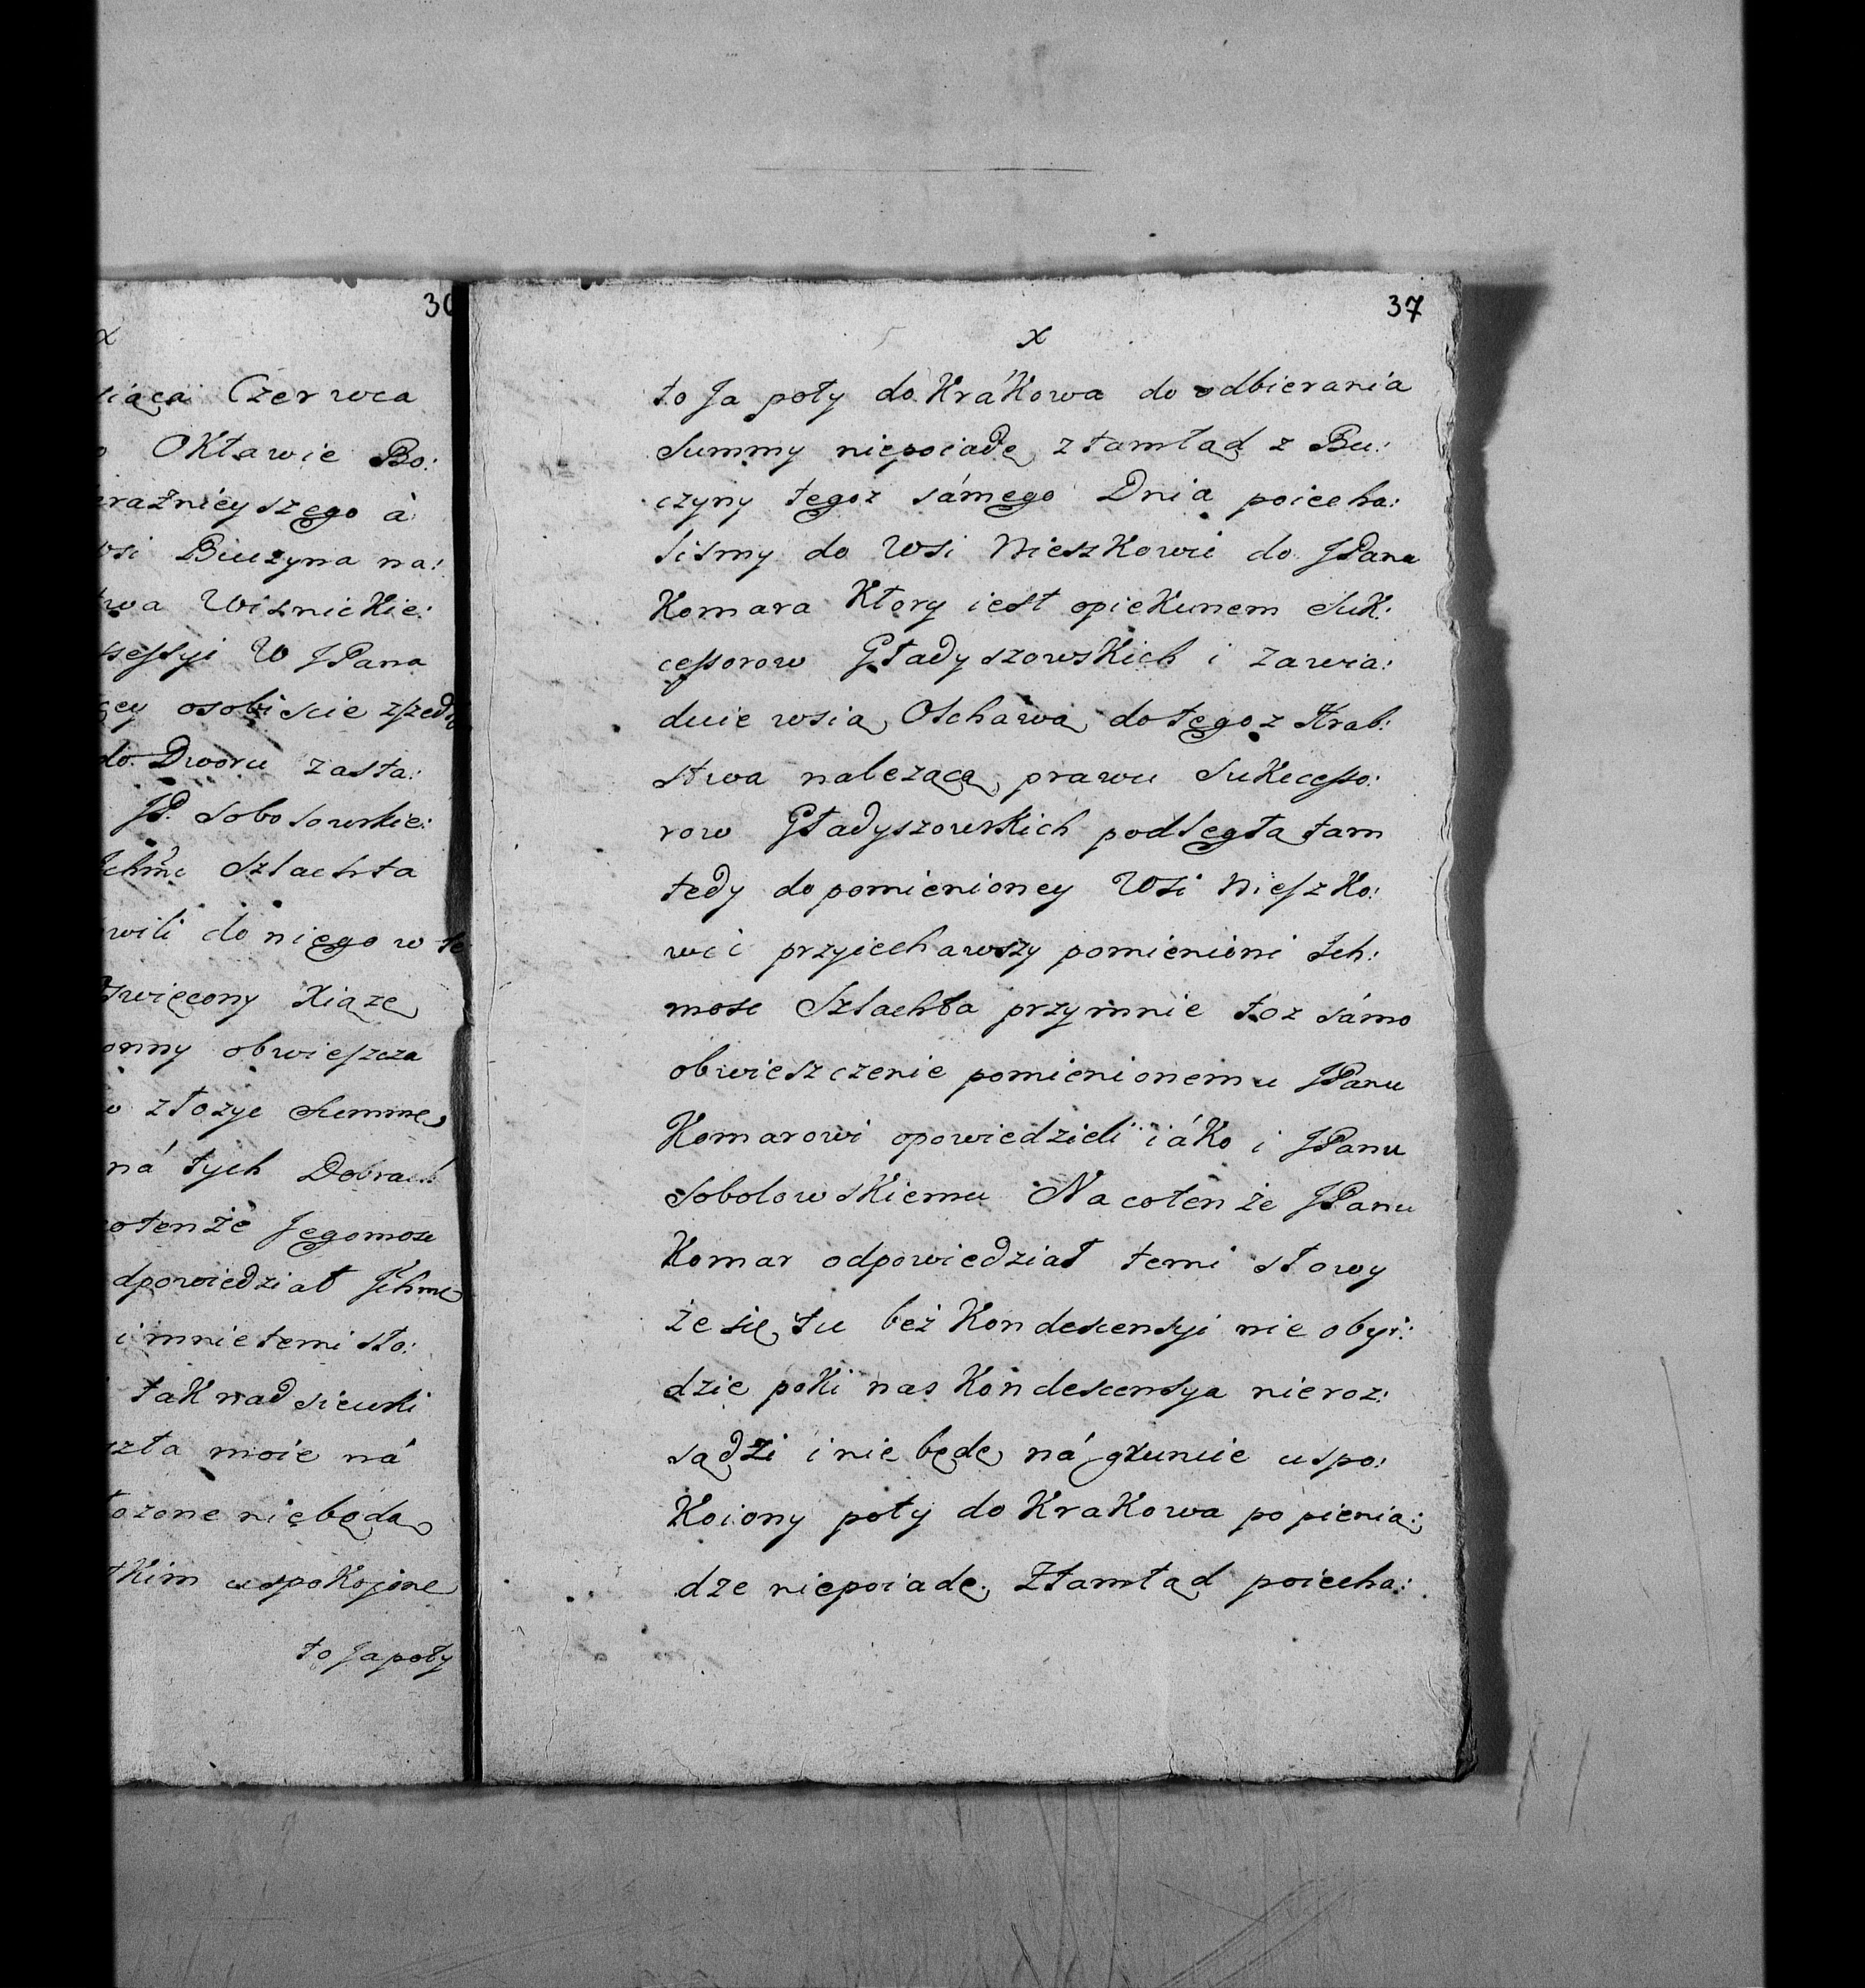 30
x
siąca Czerwca
o Oktawie Bo:
eraźnieyszego à
wsi Buczyna na:
twa Wisnickie:
ssessyi W JPana
cey osobiscie zszedł
do Dworu zasta:
JP. Sobolowskie:
Ichmć Szlachta
wili do niego w te
Swięcony Xiąze
onny obwieszcza
u złozyc Summę
ná tych Dobrach
cotenże Jegomość
dpowiedział Ichmć
i mnie temi sło:
tak nad
szta moie ná
łozone niebędą
tkim uspokojone
to Ja poty
37
x
to Ja poty do Krákowa do odbierania
Summy niepoiadę, ztamtąd z Bu:
czyny tegoz sámego Dnia poiecha:
lismy do Wsi Nieszkowic do JPana
Komara Ktory iest opiekunem Suk:
cessorow Gładyszowskich i zawia:
duie wsią Olchawą do tegoz Hrab:
stwa nalezącą, prawu Sukcesso:
row Gładyszowskich podległa tam
tedy do pomienioney Wsi Nieszko:
wic przyiechawszy pomienioni Ich:
mosc Szlachta przymnie toz sámo
obwieszczenie pomienionemu JPanu
Komarowi opowiedzieli iáko i JPanu
Sobolowskiemu Na coten że JPanu
Komar odpowiedział temi słowy
że się tu beż Kondescensyi nie obyi:
dzie poki nas Kondescensya nieroz:
sądzi i nie będę ná gruncie uspo:
Koiony poty do Krakowa po pienią:
dze niepoiadę. Ztamtąd poiecha: